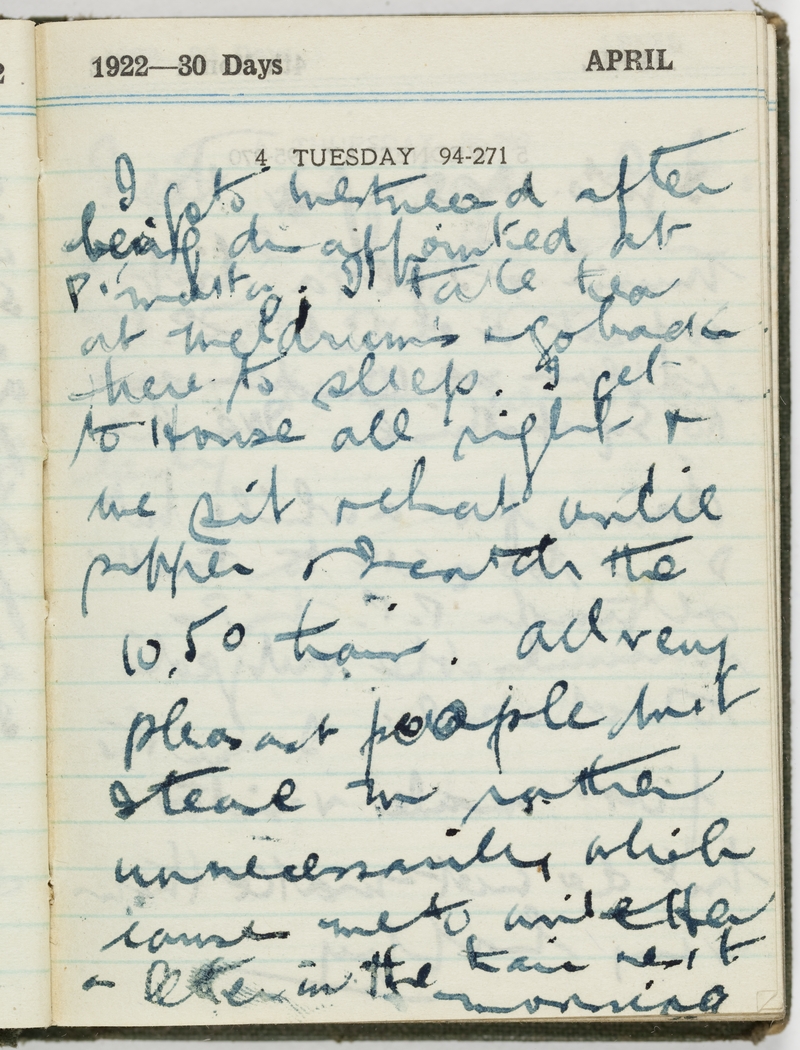 1922—30 Days APRIL
4 TUESDAY 94-271
I go to Westmead after
being disappointed at
P. I take tea
at Meldrum's & go back
there to sleep. I get
to House all right &
we sit & chat until
supper & I catch the
10.50 train. All very
pleasant people but
rather
unnecessarily, which
causes me to write Her
a letter in the train next
morning